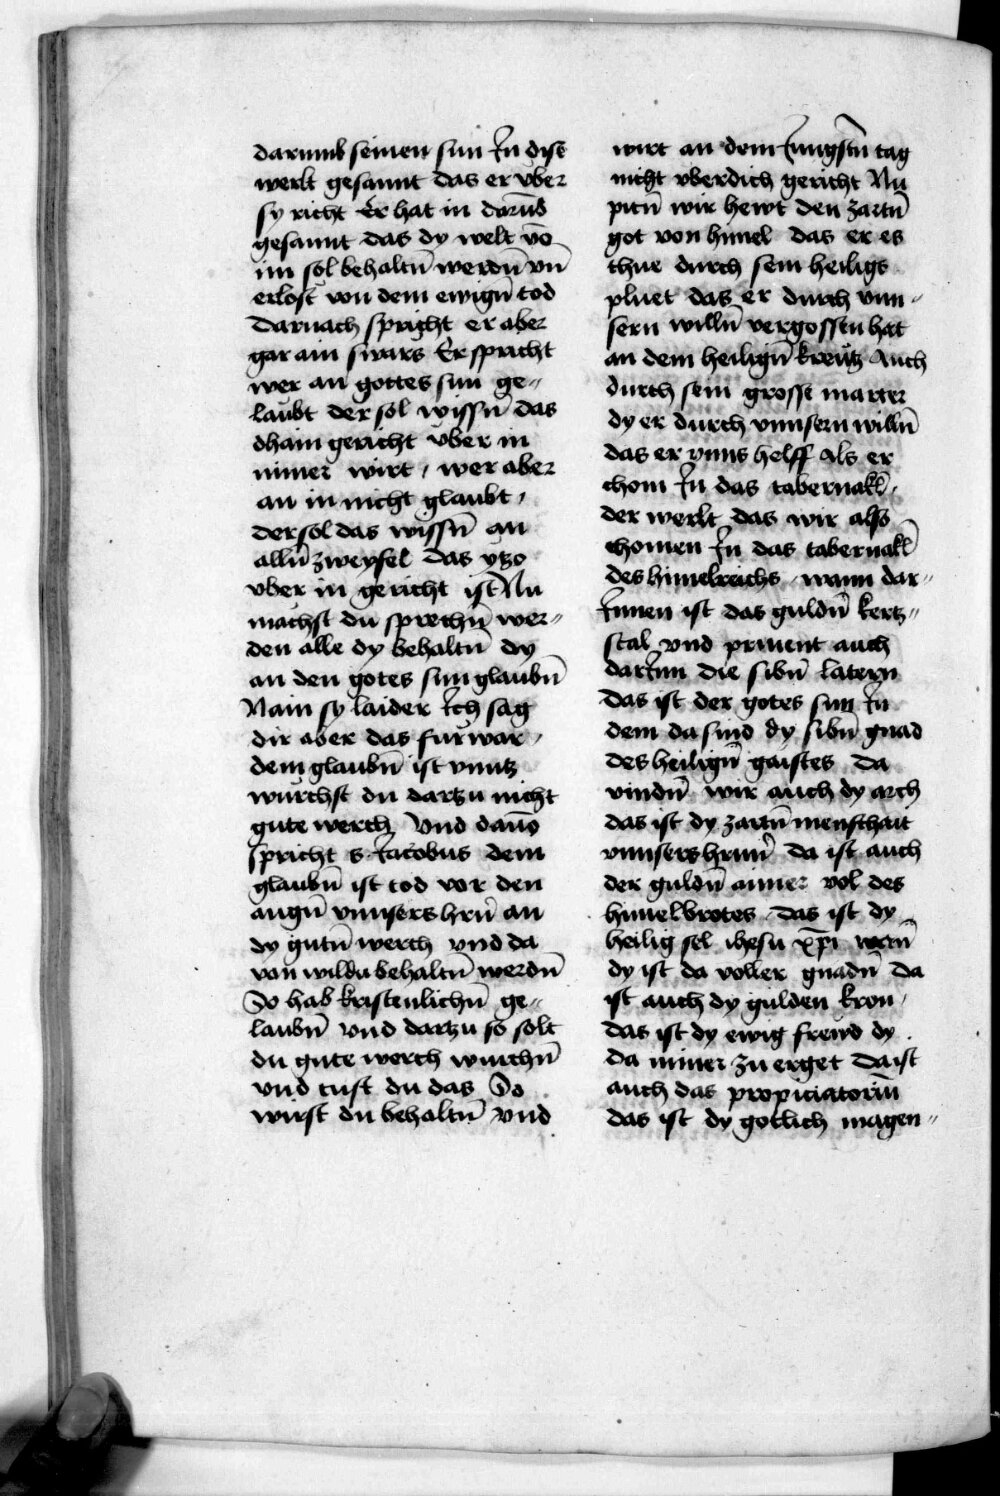 darumb seinen sun Jn dise
werlt gesannt das er vber
sy richt Er hat in dorūb
gesannt das dy welt vō
im sol behaltn̄ werdn̄ vn̄
erlost von dem ewign̄ tod
Darnach spricht er aber
gar ain swars Er spricht
wer an gottes sun ge„
laubt der sol wissn̄ das
dhain gericht vber in
nimer wirt, wer aber
an in nicht glaubt,
der sol das wissn̄ an
alln̄ zweyfel das ytzo
vber in gericht ist Nu
machst du sprechn̄ wer„
den alle dy behaltn̄ dy
an den gotes sun glaubn̄
Nain sy laider Jch sag
dir aber das fur war,
dem glaubn̄ ist vnutz
wurchst du dartzu nicht
gute werch Vnd dauō
spricht s. Jacobus dem
glaubn̄ ist tod vor den
augn̄ vnnsers hrn̄ an
dy gutn̄ werch vnd da
von wildu behaltn̄ werdn̄
So hab kristenlichn̄ ge„
laubn̄ vnd dartzu so solt
du gute werch wurchn̄
vnd tust du das So
wirst du behaltn̄ vnd
wirt an dem Jungstn̄ tag
nicht vber dich gericht Nu
pitn̄ wir hewt den zartn̄
got von himel das er es
thue durch sein heiligs
pluet das er durch vnn„
sern willn̄ vergossen hat
an dem heilign̄ kreutz Auch
durch sein grosse marter
dy er durch vnnsern willn̄
das er vnns helff als er
chom Jn das tabernakl̄,
der werlt das wir also
chomen Jn das tabernakl̄
des himelreichs, wann dar„
Jnnen ist das guldn̄ kertz„
stal vnd prinent auch
darJnn die sibn̄ latern
Das ist der gotes sun Jn
dem da sind dy sibn̄ gnad
des heilign̄ gaistes Da
vindn̄ wir auch dy arch
das ist dy zartn̄ menschait
vnnsers hrnn̄ da ist auch
der guldn̄ aimer vol des
himelbrotes, das ist dy
heilig sel ihesu xp̄i wan̄
dy ist da voller gnadn̄ Da
ist auch dy gulden kron,
das ist dy ewig frewd dy
da nimer zu erget Da ist
auch das propiciatoriū
das ist dy gotlich magen„